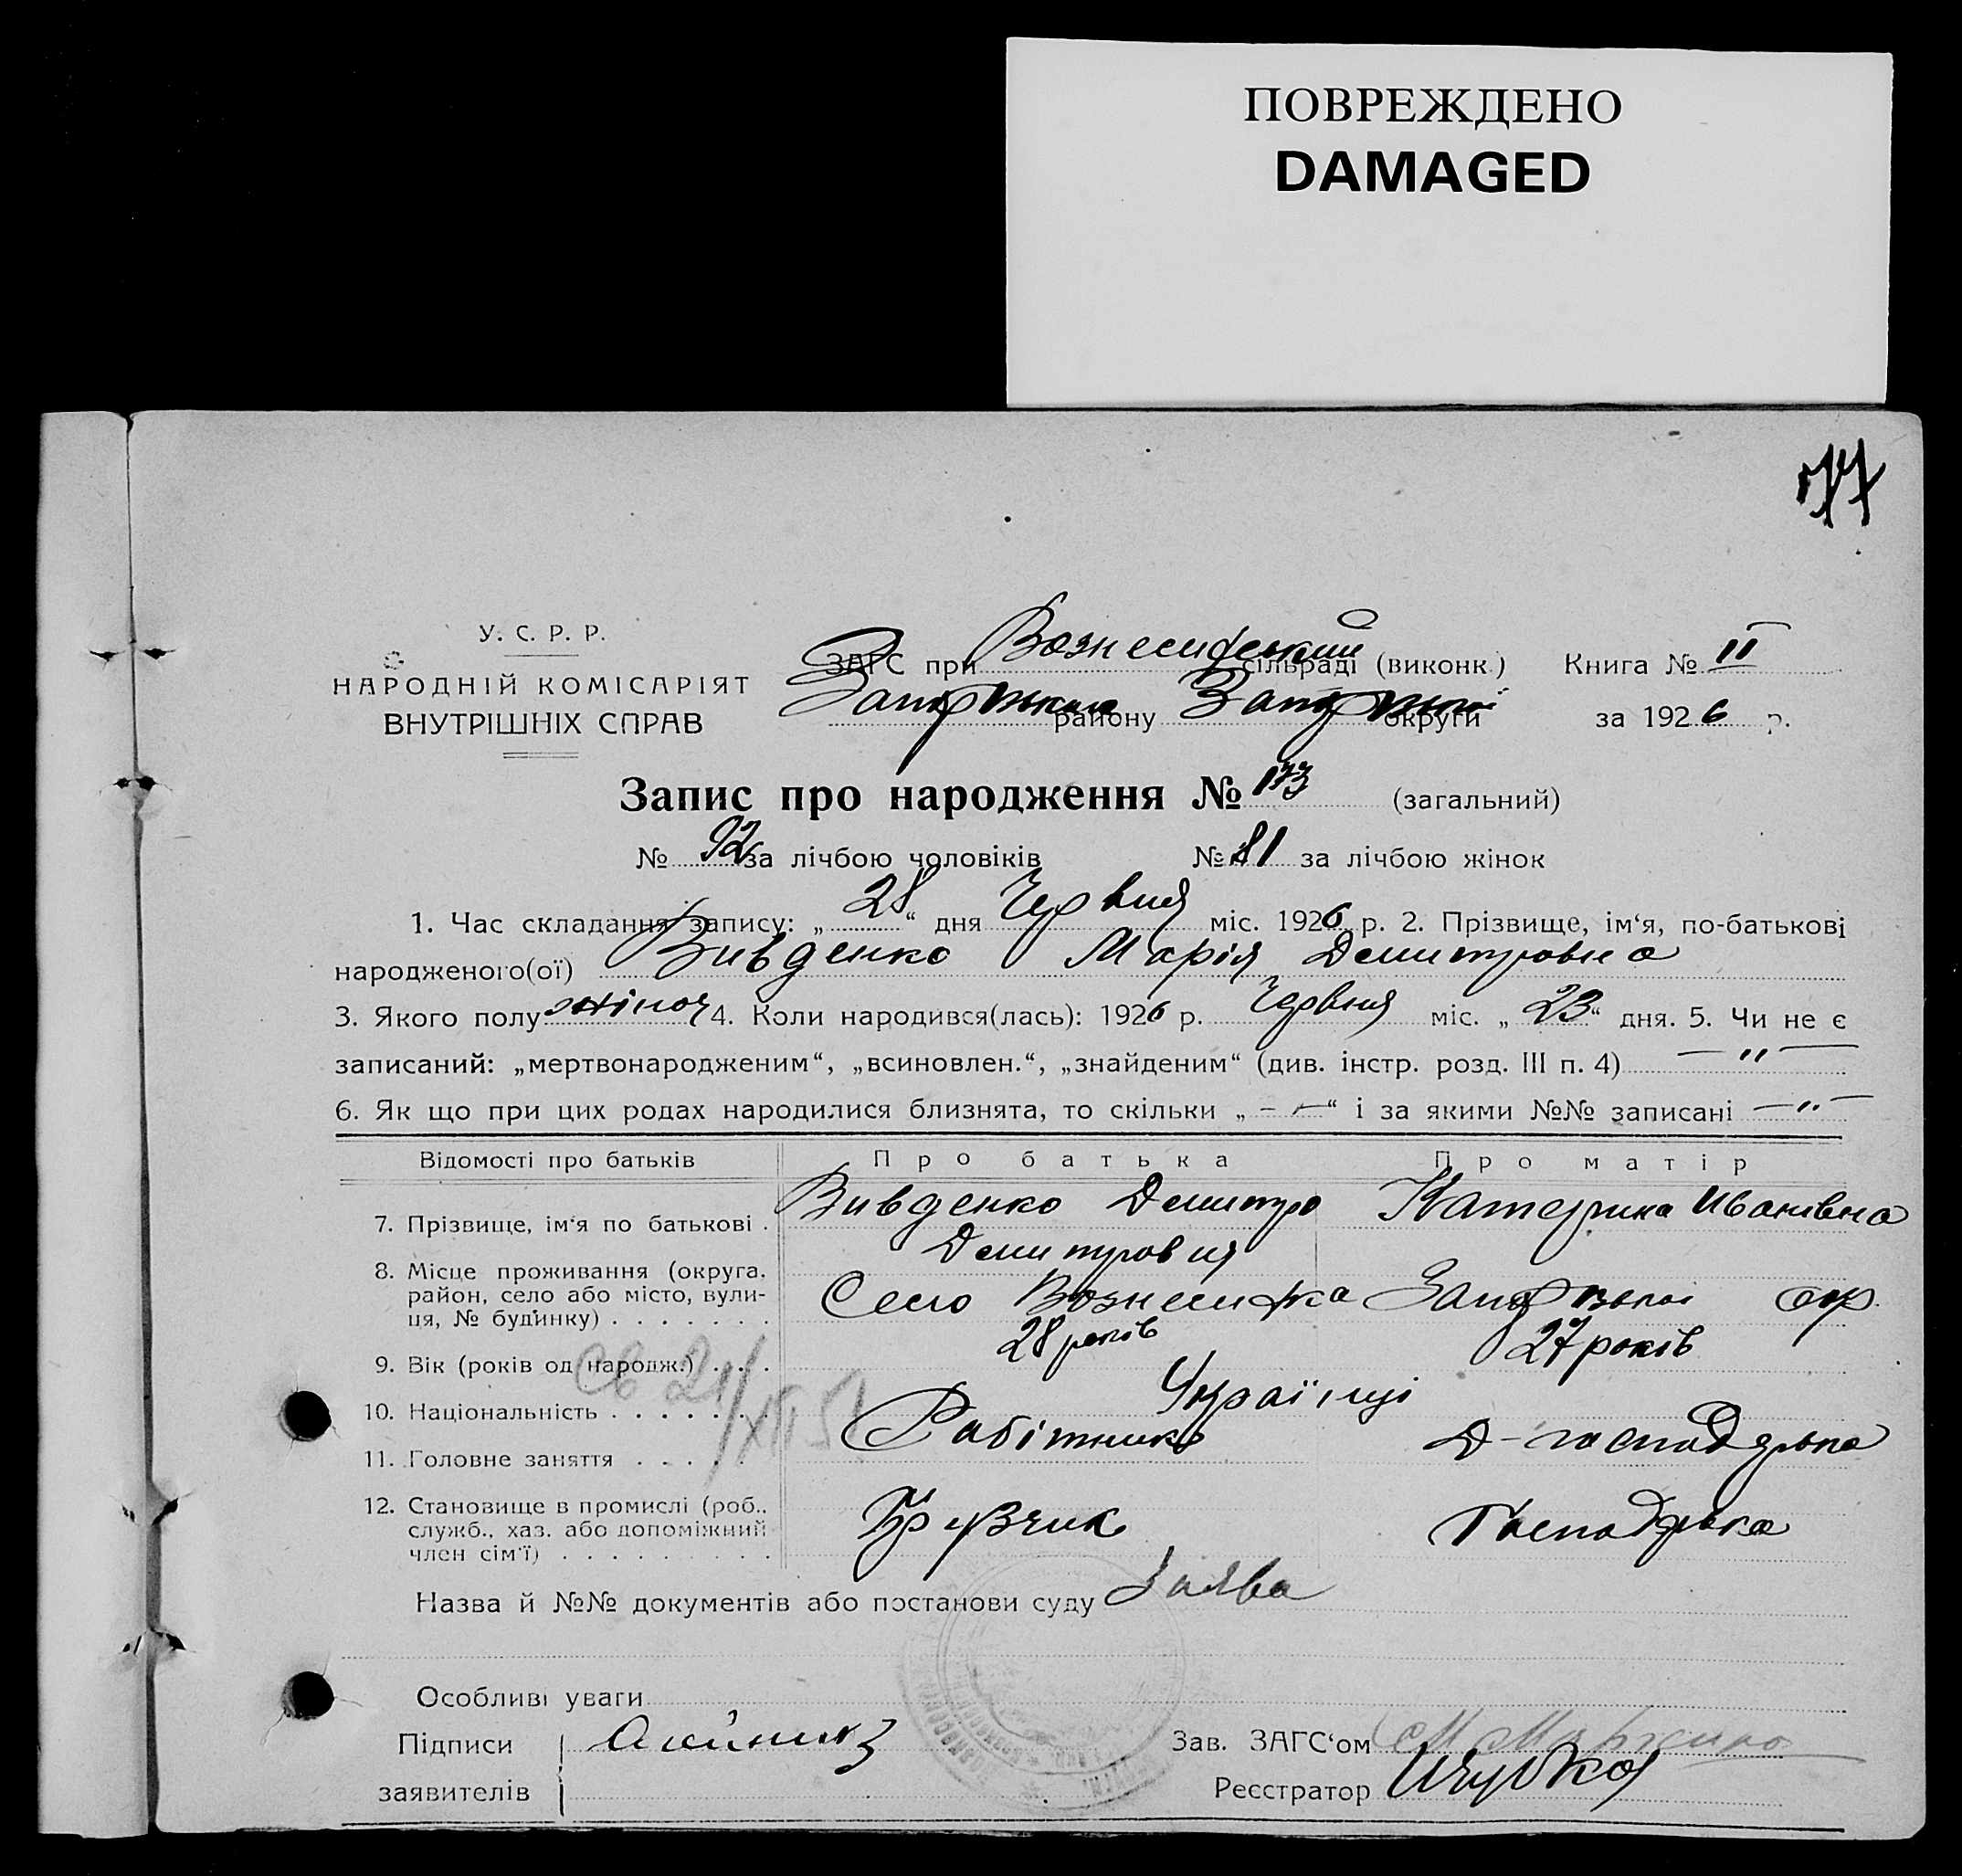 ПОВРЕЖДЕНО
DAMAGED
У. С. Р. Р.
НАРОДНІЙ КОМІСАРІЯТ
ВНУТРІШНІХ СПРАВ
ЗАГС при Вознесенський сільраді (виконк.) Книга № II
району округи за 1926 р.
Запис про народження № 173 (загальний)
№ 92 за лічбою чоловіків № 81 за лічбою жінок
1. Час складання запису: „28“ дня Червня міс. 1926 р. 2. Прізвище, ім‘я, по-батькові
народженого(ої) Вивденко Марія Демитровна
3. Якого полу жіноч 4. Коли народився(лась): 1926 р. Червня міс. „23“ дня. 5. Чи не є
записаний: „мертвонародженим“, „всиновлен.“, „знайденим“ (див. інстр. розд. III п. 4) — " —
6. Як що при цих родах народилися близнята, то скільки „ - — “ і за якими №№ записані — " —
Відомості про батьків Про батька Про матір
7. Прізвище, ім‘я по батькові . Вивденко Демитро Катерина Иванівна
Демитровия
8. Місце проживання (округа, район, село або місто, вули-
ця, № будинку) . . . . . . . Село Вознесенка окр.
9. Вік (років од народж.) . . . 28 років 27 років
10. Національність . . . . . . . Українці
11. Головне заняття . . . . . Рабітник Д-господарька
12. Становище в промислі (роб.,
служб., хаз. або допоміжний
член сім‘ї) . . . . . . . . . Грузчик Господарька
Назва й №№ документів або постанови суду Заява
Особливі уваги
Підписи Зав. ЗАГС‘ом
заявителів Реєстратор